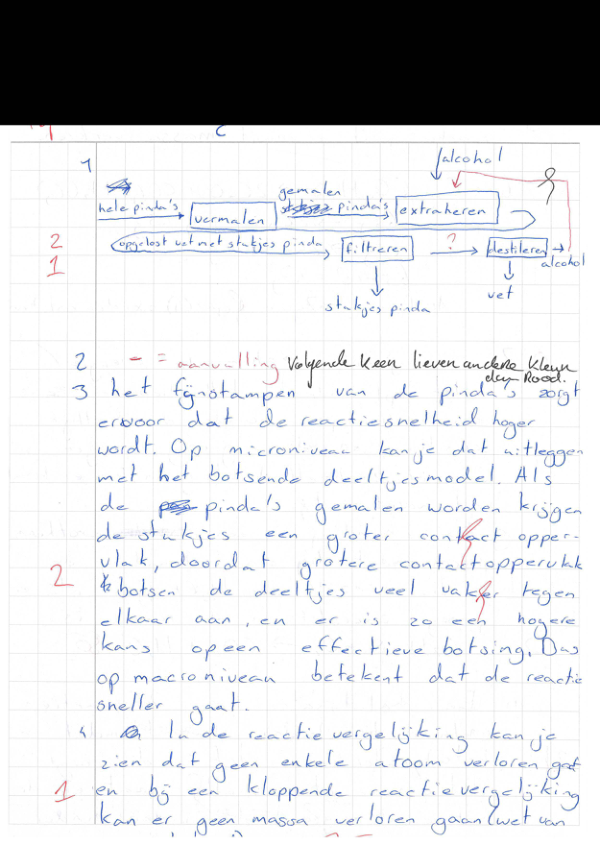 C
1 alcohol
gemalen
hele pinda's vermalen pinda's extraheren
2 opgelost vet met stukjes pinda filtreren ? destileren
1 alcohol
vet
stukjes pinda
2 - = aanvulling Volgende Keer lieven andere kleur
dan Rood.
3 het fijnstampen van de pinda's zorgt
ervoor dat de reactiesnelheid hoger
wordt. Op microniveau kan je dat uitleggen
met het botsende deeltjesmodel. Als
de pinda's gemalen worden krijgen
de stukjes een groter contact opper-
vlak, doordat grotere contactoppervlak
2 botsen de deeltjes veel vaker tegen
elkaar aan, en er is zo een hogere
kans op een effectieve botsing. Dus
op macroniveau betekent dat de reactie
sneller gaat.
4 In de reactievergelijking kan je
zien dat geen enkele atoom verloren gat
1 en bij een kloppende reactievergelijking
kan er geen massa verloren gaan (wet van